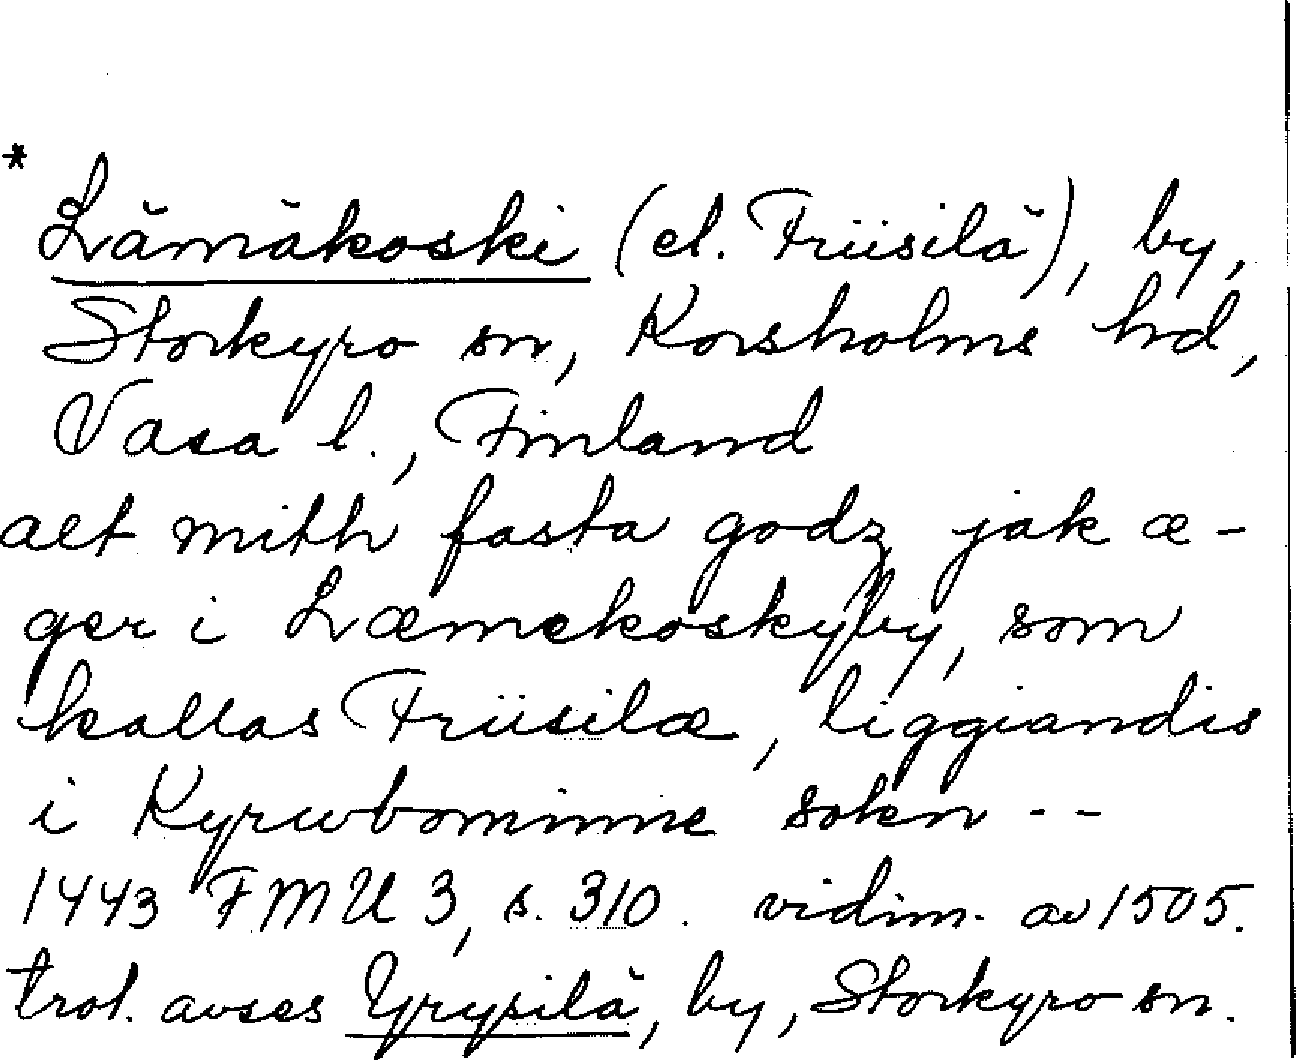 *
Lämäkoski (el. Früsilä), by,
Storkyro sn, Korsholms hd,
Vasa l., Finland
alt mith fasta godz jak æ-
ger i Læmekoskyby, som
kallas Früsilæ, liggiandis
i Kyrwbominne sokn --
1443 FMU 3, s. 310. vidim. av 1505.
trol. avses Yrysilä, by, Storkyro sn.